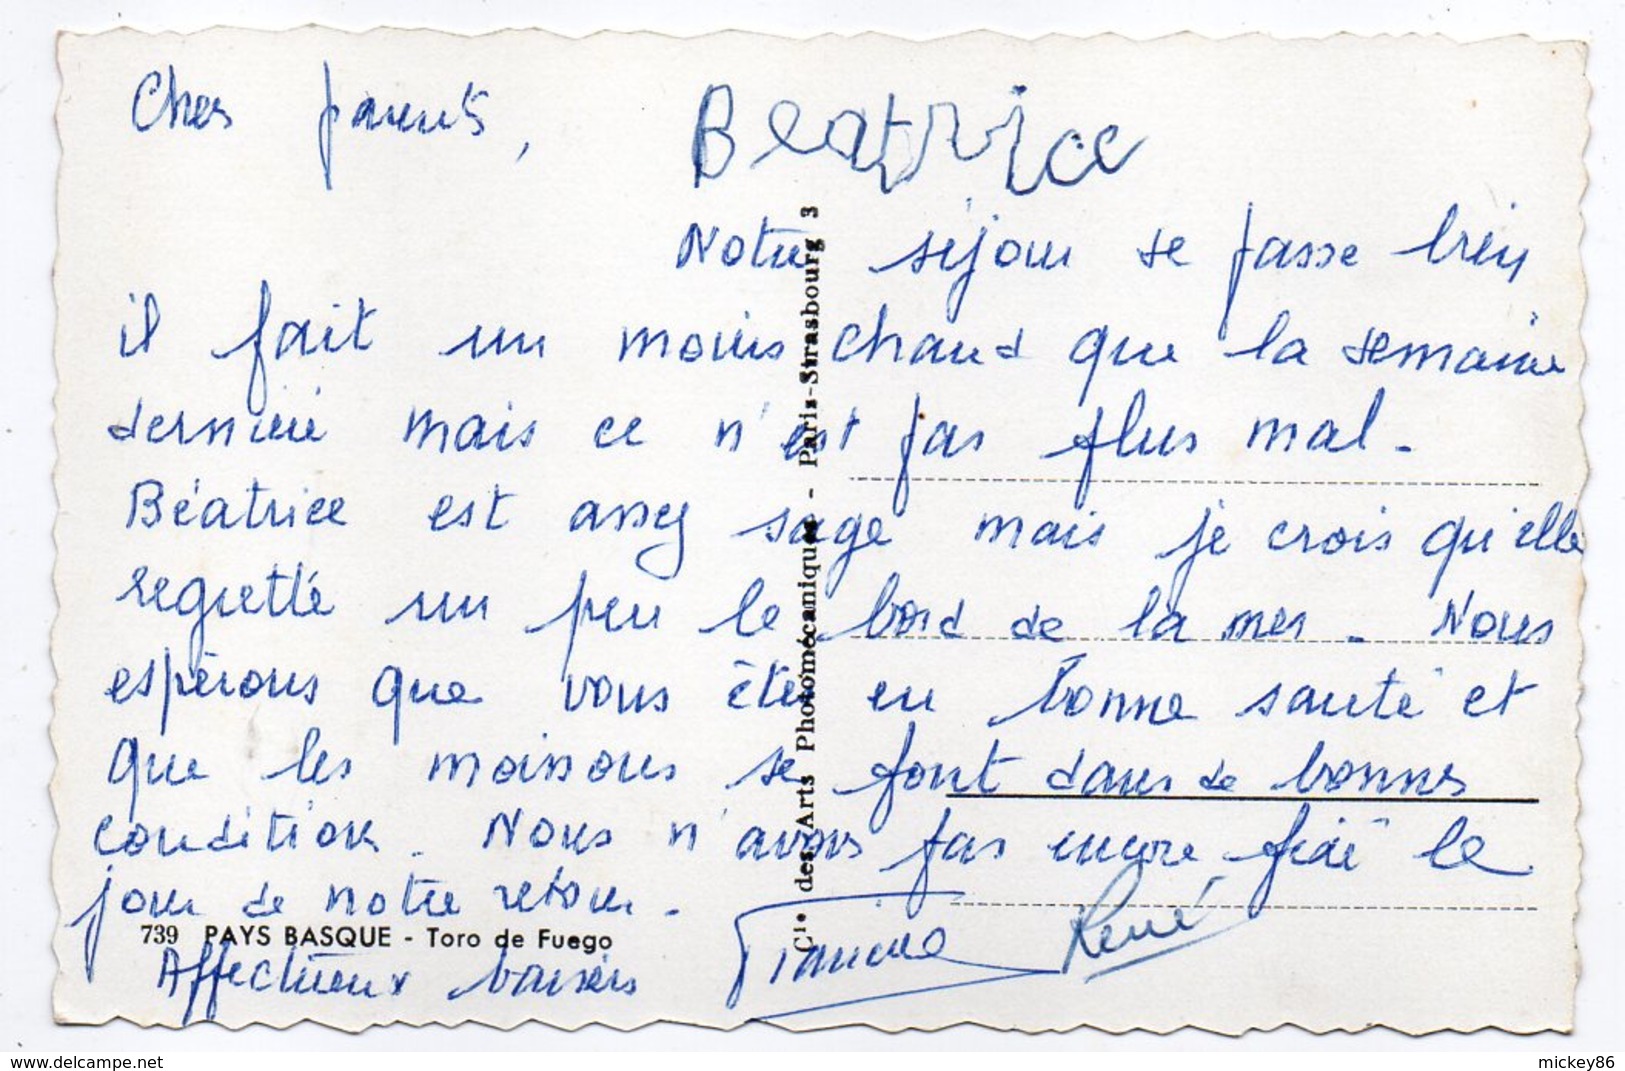 Chers parents,
Beatrice
Notre séjour se passe bien
il fait un moins chaud que la semaine
dernière mais ce n'est pas plus mal.
Béatrice est assez sage mais je crois qu'elle
regrette un peu le bord de la mer. Nous
espérons que vous êtes en bonne santé et
que les moissons se font dans de bonnes
condition. Nous n'avons pas encore fixé le
jour de notre retour.
739 PAYS BASQUE - Toro de Fuego
Affectueux baisers Francine René
Cie des Arts Photomécaniques - Paris-Strasbourg 3
delcampe.net
mickey86